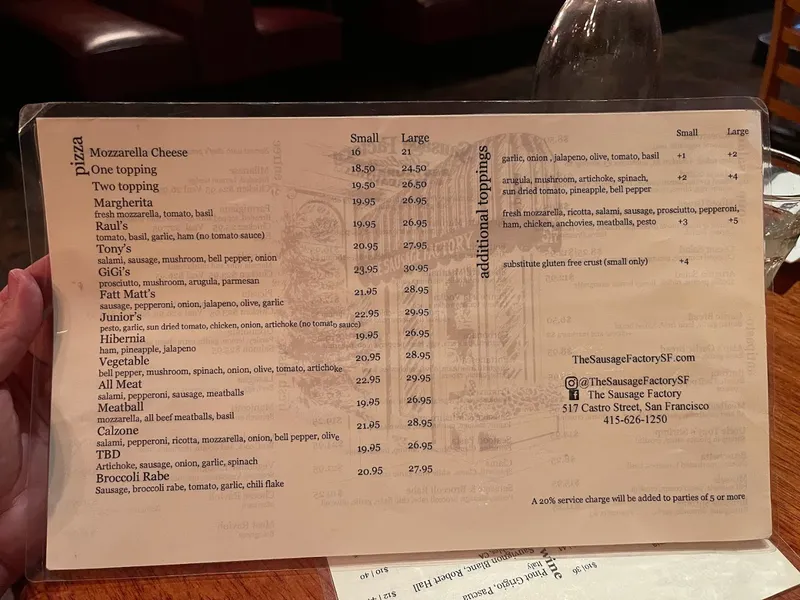 pizza
Small Large
Mozzarella Cheese 16 21
One topping 18.50 24.50
Two topping 19.50 26.50
Margherita 19.95 26.95
fresh mozzarella, tomato, basil
Raul's 19.95 26.95
tomato, basil, garlic, ham (no tomato sauce)
Tony's 20.95 27.95
salami, sausage, mushroom, bell pepper, onion
GiGi's 23.95 30.95
prosciutto, mushroom, arugula, parmesan
Fatt Matt's 21.95 28.95
sausage, pepperoni, onion, jalapeno, olive, garlic
Junior's 22.95 29.95
pesto, garlic, sun dried tomato, chicken, onion, artichoke (no tomato sauce)
Hibernia 19.95 26.95
ham, pineapple, jalapeno
Vegetable 20.95 28.95
bell pepper, mushroom, spinach, onion, olive, tomato, artichoke
All Meat 22.95 29.95
salami, pepperoni, sausage, meatballs
Meatball 19.95 26.95
mozzarella, all beef meatballs, basil
Calzone 21.95 28.95
salami, pepperoni, ricotta, mozzarella, onion, bell pepper, olive
TBD 19.95 26.95
Artichoke, sausage, onion, garlic, spinach
Broccoli Rabe 20.95 27.95
Sausage, broccoli rabe, tomato, garlic, chili flake
additional toppings
Small Large
garlic, onion , jalapeno, olive, tomato, basil +1 +2
arugula, mushroom, artichoke, spinach, +2 +4
sun dried tomato, pineapple, bell pepper
fresh mozzarella, ricotta, salami, sausage, prosciutto, pepperoni,
ham, chicken, anchovies, meatballs, pesto +3 +5
substitute gluten free crust (small only) +4
TheSausageFactorySF.com
@TheSausageFactorySF
The Sausage Factory
517 Castro Street, San Francisco
415-626-1250
A 20% service charge will be added to parties of 5 or more
wine
Pinot Grigio, Pascua $10|36
Italy
Sauvignon Blanc, Robert Hall $10 | 40